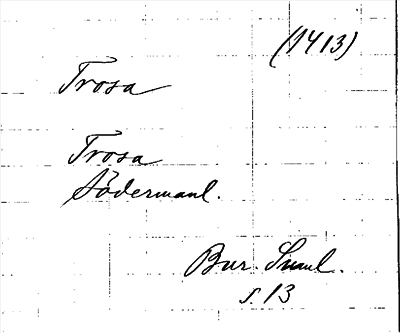 (1413)
Trosa
Trosa
Södermanl.
Bur. Suanl.
s. 13